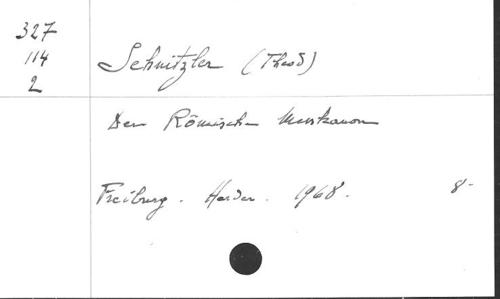 327
114
2
Schnitzler (Theod)
Der Römische Messkanon
Freiburg. Herder. 1968. 8-